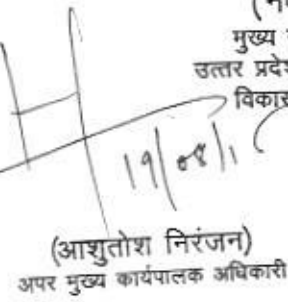 मुख्य
उत्तर प्रदेश
विकास
(आशुतोश निरंजन)
अपर मुख्य कार्यपालक अधिकारी